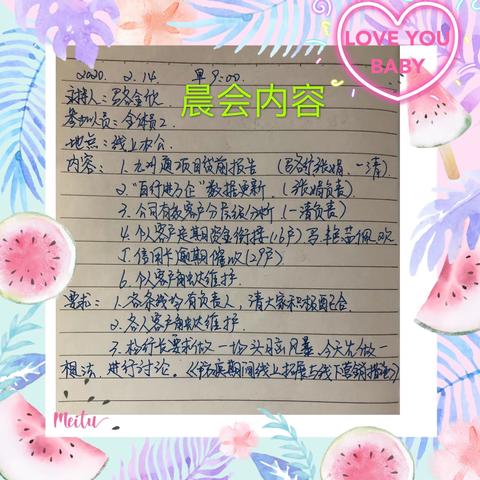 LOVE YOU
BABY
晨会内容
2020. 2.14 早9:00.
主持人:
参加人员:全体员工
地点:线上办公.
内容: 1.九州通项目贷前报告
2."百行进万企"数据更新.(张娟负责)
3.公司有效客户分层级分析(一清负责)
4.个人客户定期资金衔接(16户)
5.信用卡逾期催收(29户)
6.个人客户触达维护.
要求:1.各条线令有负责人,请大家积极配合.
2.各人客户触达维护.
3.杨行长要求做一场头目风暴.今天先做一
想法.进行讨论.期间线上拓展与线下营销措施》
Meitu